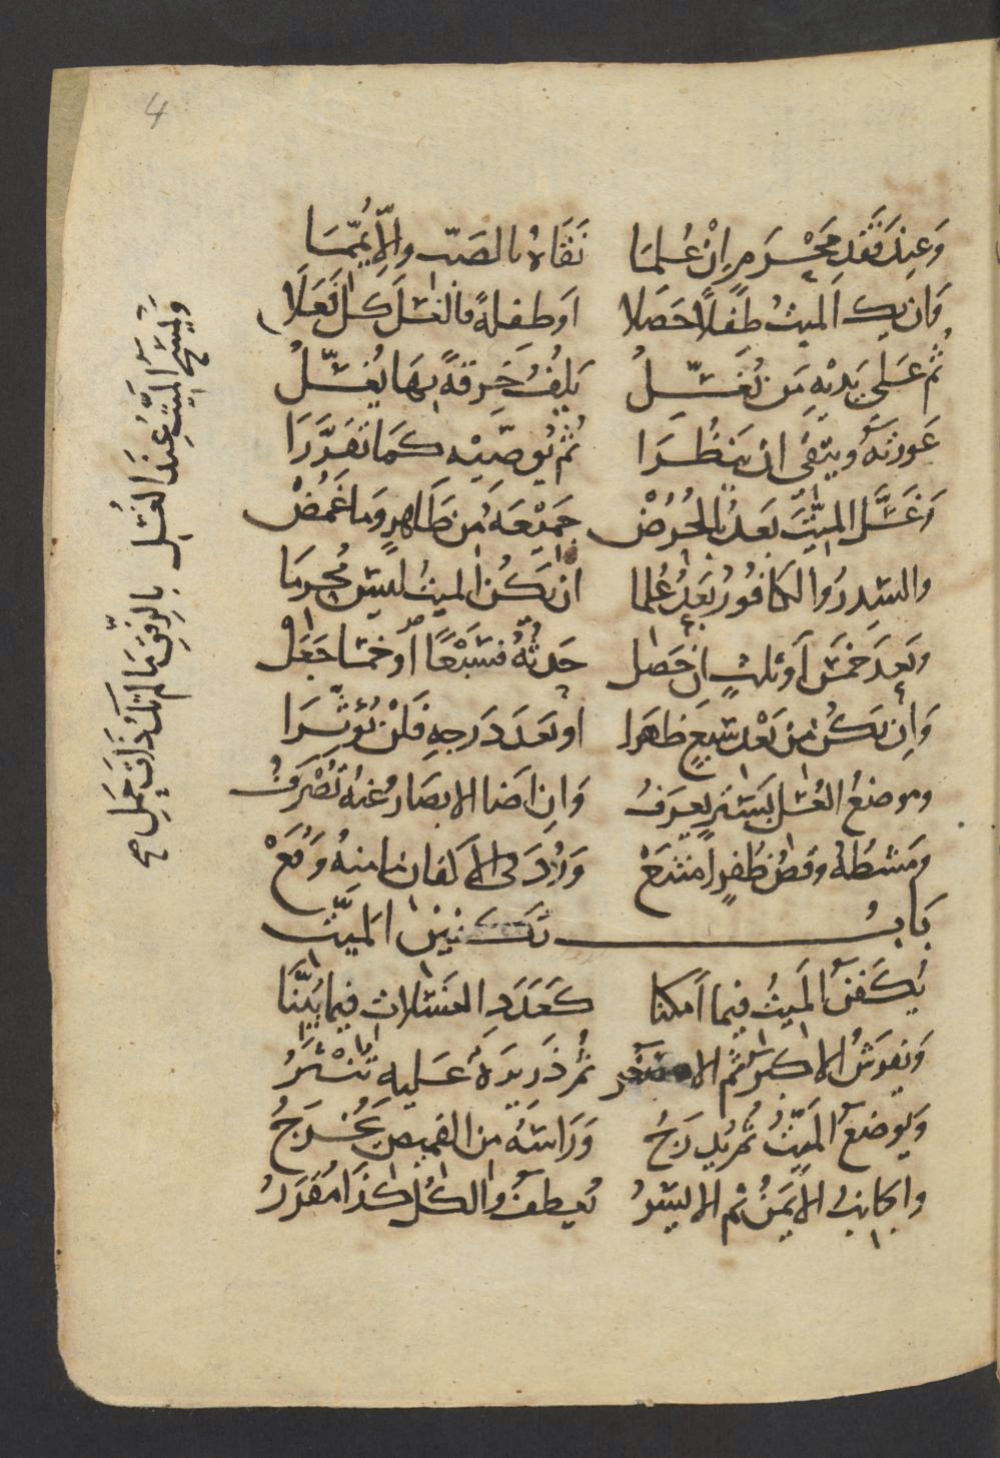 4
وَعِندَ فَقْدِ مَحْرَمٍ إنْ عُلمَا نَقَاهُ بالصَبّ وإلّا يُمّمَا
وَان يك الميتُ طفلاً حَصَلا اوَ طِفلةً فالغسْلَ كلٌ فَعَلَا
ثُم عَلى يَديْه مَن يُغَسّلُ يَلِفُ خَرقةً بهَا يُغسّلُ
عَورَتهُ ويتّقى ان يَنظُرَا ثُم يُوَضّيْه كَمَا تَقَرَّرَا
وَغسَّل الميّتَ بَعدُ بالحُرُضْ جَميْعَهُ مِن ظَاهرٍ وَما غَمُضْ
والسِدر والكافُورُ بَعدُ عُلما ان يَكن الميتُ ليسَ مُحرِمَا
وبَعدَ خمسٍ اَو ثلاثٍ ان حَصَل حَدثُهُ فسَبْعًا او خمسًا جَعَلْ
وَان يَكُن مِن بَعْد سَبعٍ ظهَرا او بَعدَ دَرجهِ فَلنْ يُؤثّرَا
وموضعُ الغسْل بسَترٍ يعرَفُ وَان اضا الابصَارُ عنهُ تُصْرَفُ
ومَشطُهُ وقصُ ظفرٍ امتنَعْ وَرُدَ فى الاكفان ما منهُ وَقعْ
بَابُ تكفنين الميّت
يُكَفن الَميتُ فيما اَمكنا كَعَدَدِ الغسَلات فيما بُيّنَا
وَيفرشُ الاكبر ثم الاصغر ثُم ذَريرَةٌ عَليهِ تُنْشَرُ
وَيوضعُ الَميّتُ ثُم يُدرَجُ وَرَاسَهُ مِن القميص يُخرَجُ
والجانبُ الايَمنُ ثم الايسَرُ يُعطفُ والكل كَذَا مُقَرّرُ
وَليُمْسَحِ الَميِّتُ عِندَ الغُسْلِ بالرِفْقِ مَا لم تك ذَاتَ حَملِ صح